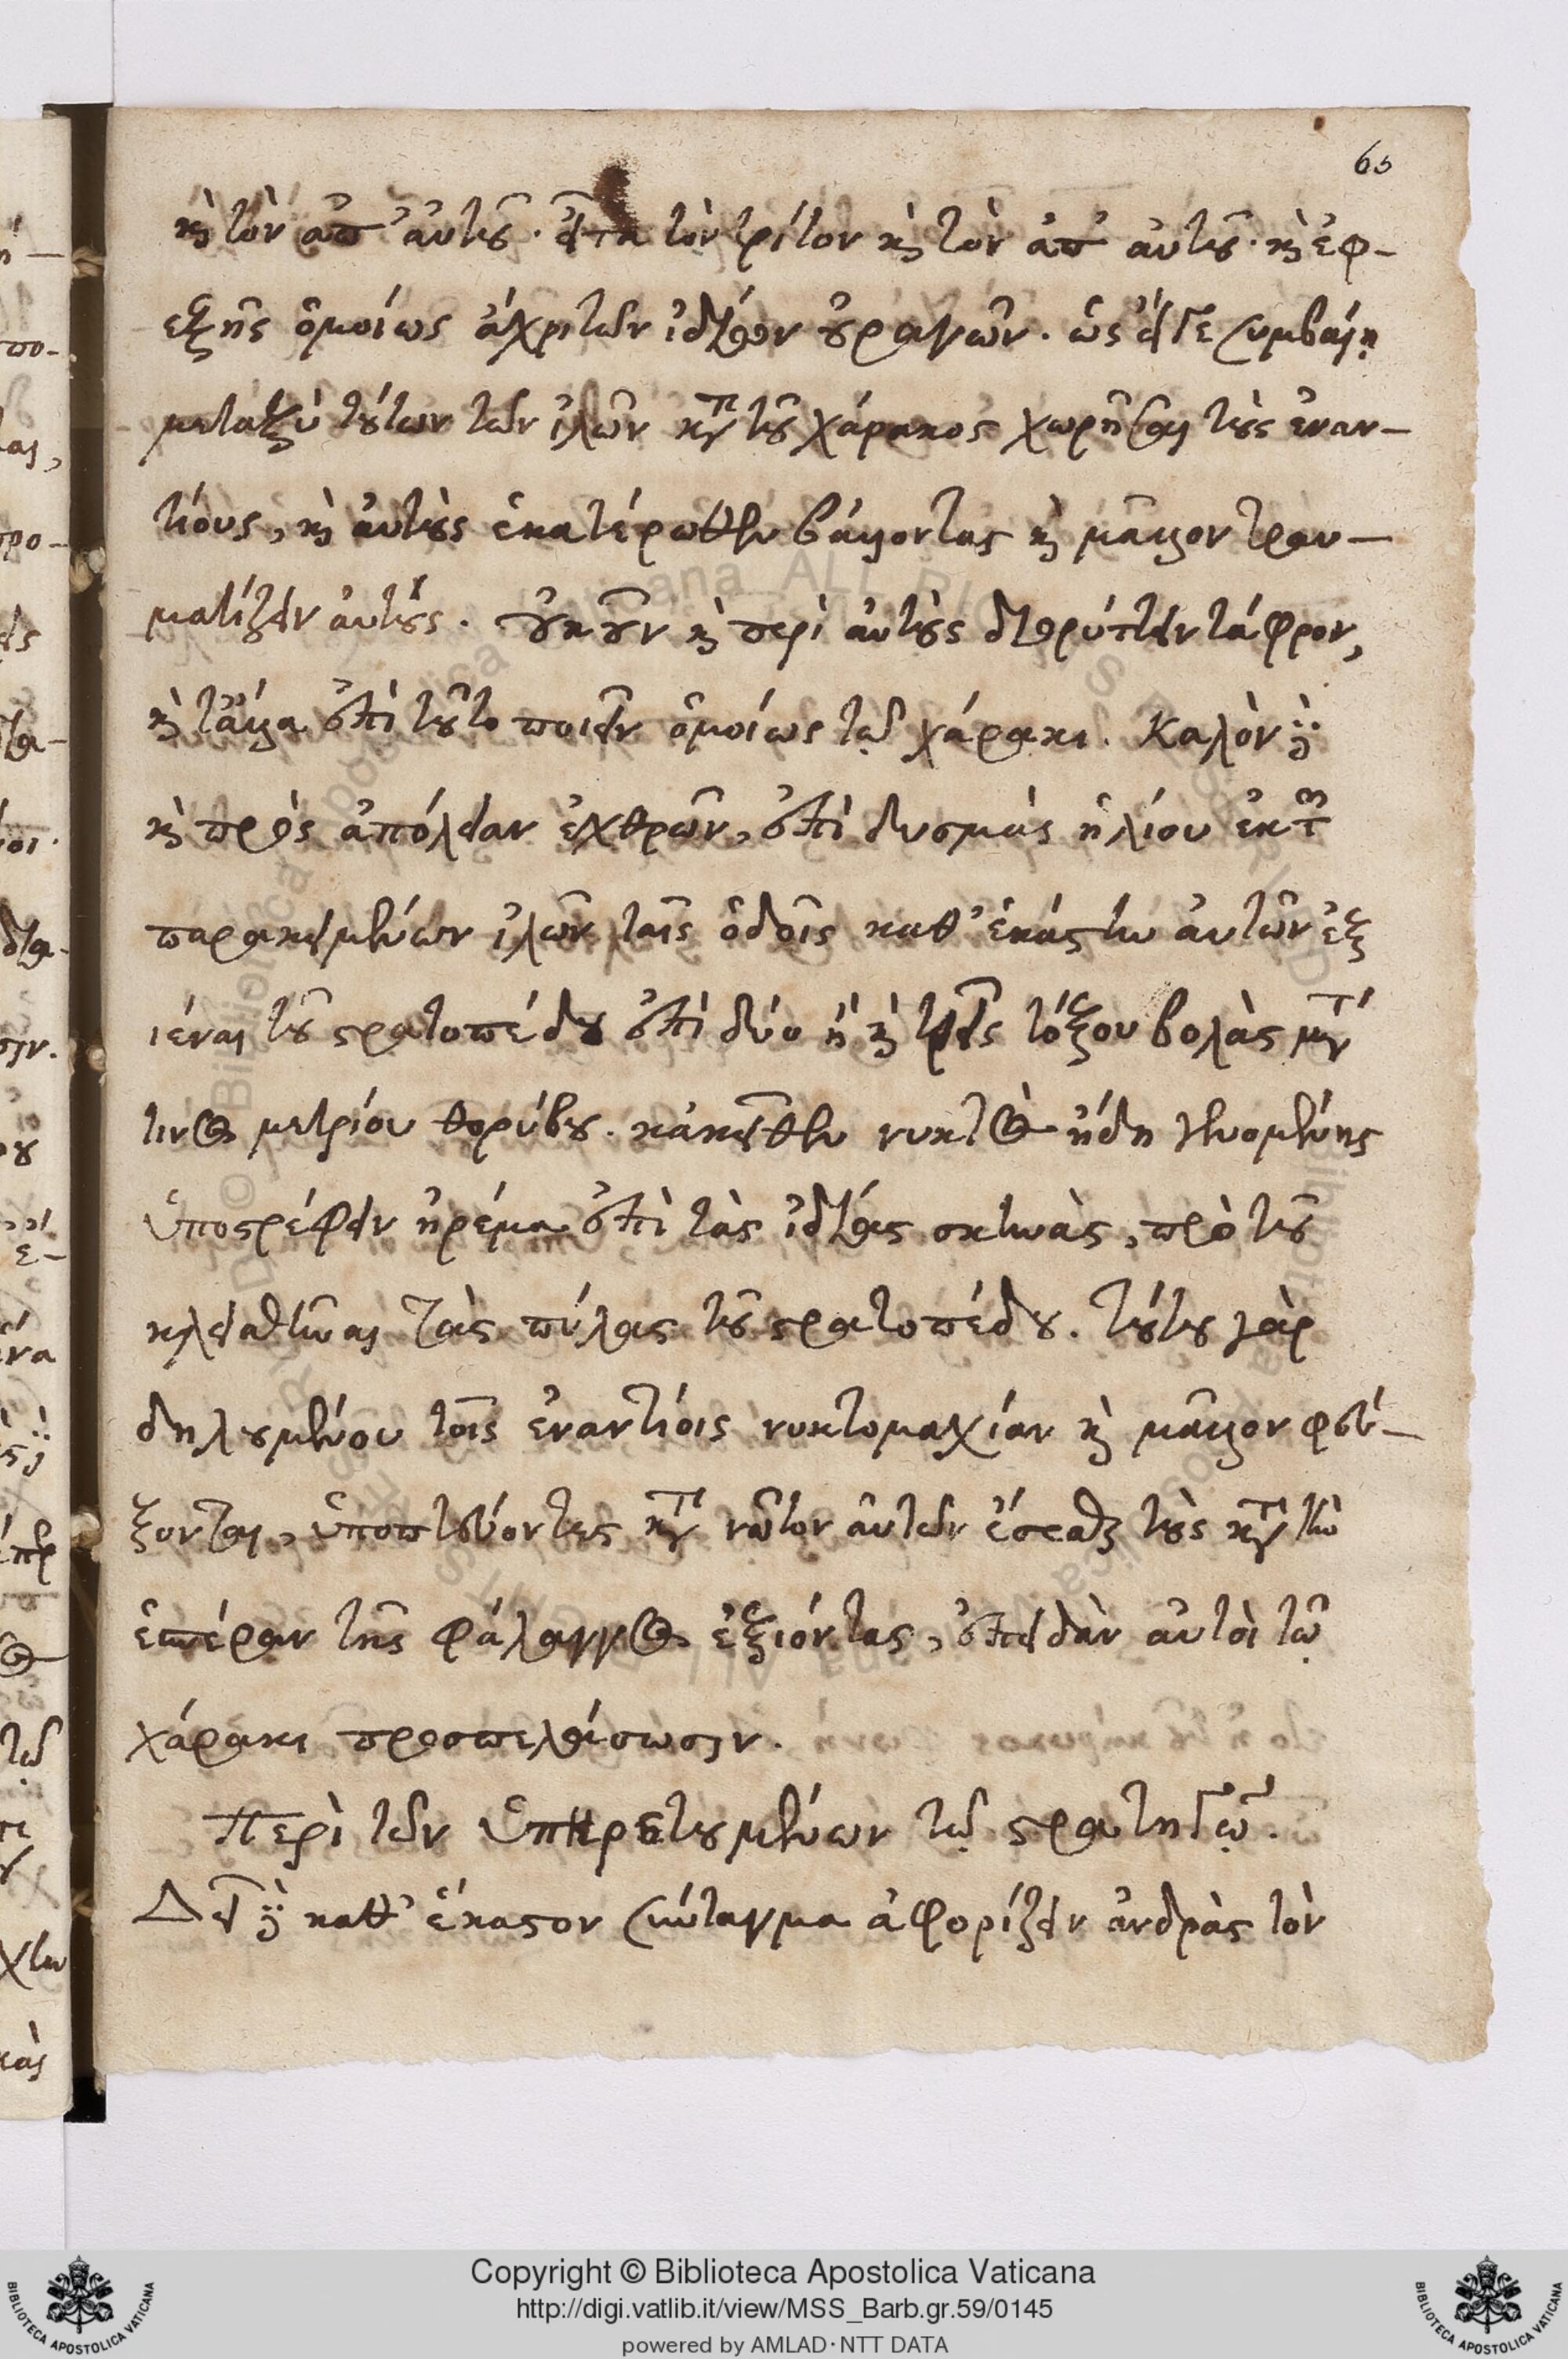 65
καὶ τὸν ἀπ' αὐτοῦ. εἶτα τὸν τρίτον καὶ τὸν ἀπ' αὐτοῦ. καὶ ἐφ-
εξῆς ὁμοίως ἄχρι τῶν ἰδίων οὐραγῶν. ὡς εἴγε συμβαίη
μεταξὺ τούτων τῶν ἰλῶν καὶ τοῦ χάρακος χωρῆσαι τοὺς ἐναν-
τίους, καὶ αὐτοὺς ἑκατέρωθεν βάλλοντας καὶ μᾶλλον τραυ-
ματίζειν αὐτούς. οὐκοῦν καὶ περὶ αὐτοὺς διορύττειν τάφρον,
καὶ τἄλλα ἐπὶ τοῦτο ποιεῖν ὁμοίως τῷ χάρακι. Καλὸν δὲ
καὶ πρὸς ἀπόλειαν ἐχθρῶν, ἐπὶ δυσμὰς ἡλίου ἐκ τῶν
παρακειμένων ἰλῶν ταῖς ὁδοῖς καθ' ἑκάστην αὐτῶν ἐξ
ιέναι τοῦ στρατοπέδου ἐπὶ δύο ἢ καὶ τρεῖς τόξου βολὰς μετά
τινος μετρίου θορύβου. κἀκεῖθεν νυκτὸς ἤδη γενομένης
ὑποστρέφειν ἠρέμα ἐπὶ τὰς ἰδίας σκηνὰς, πρὸ τοῦ
κλεισθῆναι τὰς πύλας τοῦ στρατοπέδου. τούτου γὰρ
δηλουμένου τοῖς ἐναντίοις νυκτομαχίαν καὶ μᾶλλον φεύ-
ξονται, ὑποπτεύοντες κατὰ νῶτον αὐτῶν ἔσεσθαι τοὺς κατὰ τὴν
ἑσπέραν τῆς φάλαγγος ἐξιόντας, ἐπειδὰν αὐτοὶ τῷ
χάρακι προσπελάσωσιν.
Περὶ τῶν ὑπηρετουμένων τῷ στρατηγῷ.
Δεῖ δὲ καθ' ἕκαστον σύνταγμα ἀφορίζειν ἀνδρὰς τὸν
Copyright © Biblioteca Apostolica Vaticana
http://digi.vatlib.it/view/MSS_Barb.gr.59/0145
powered by AMLAD·NTT DATA